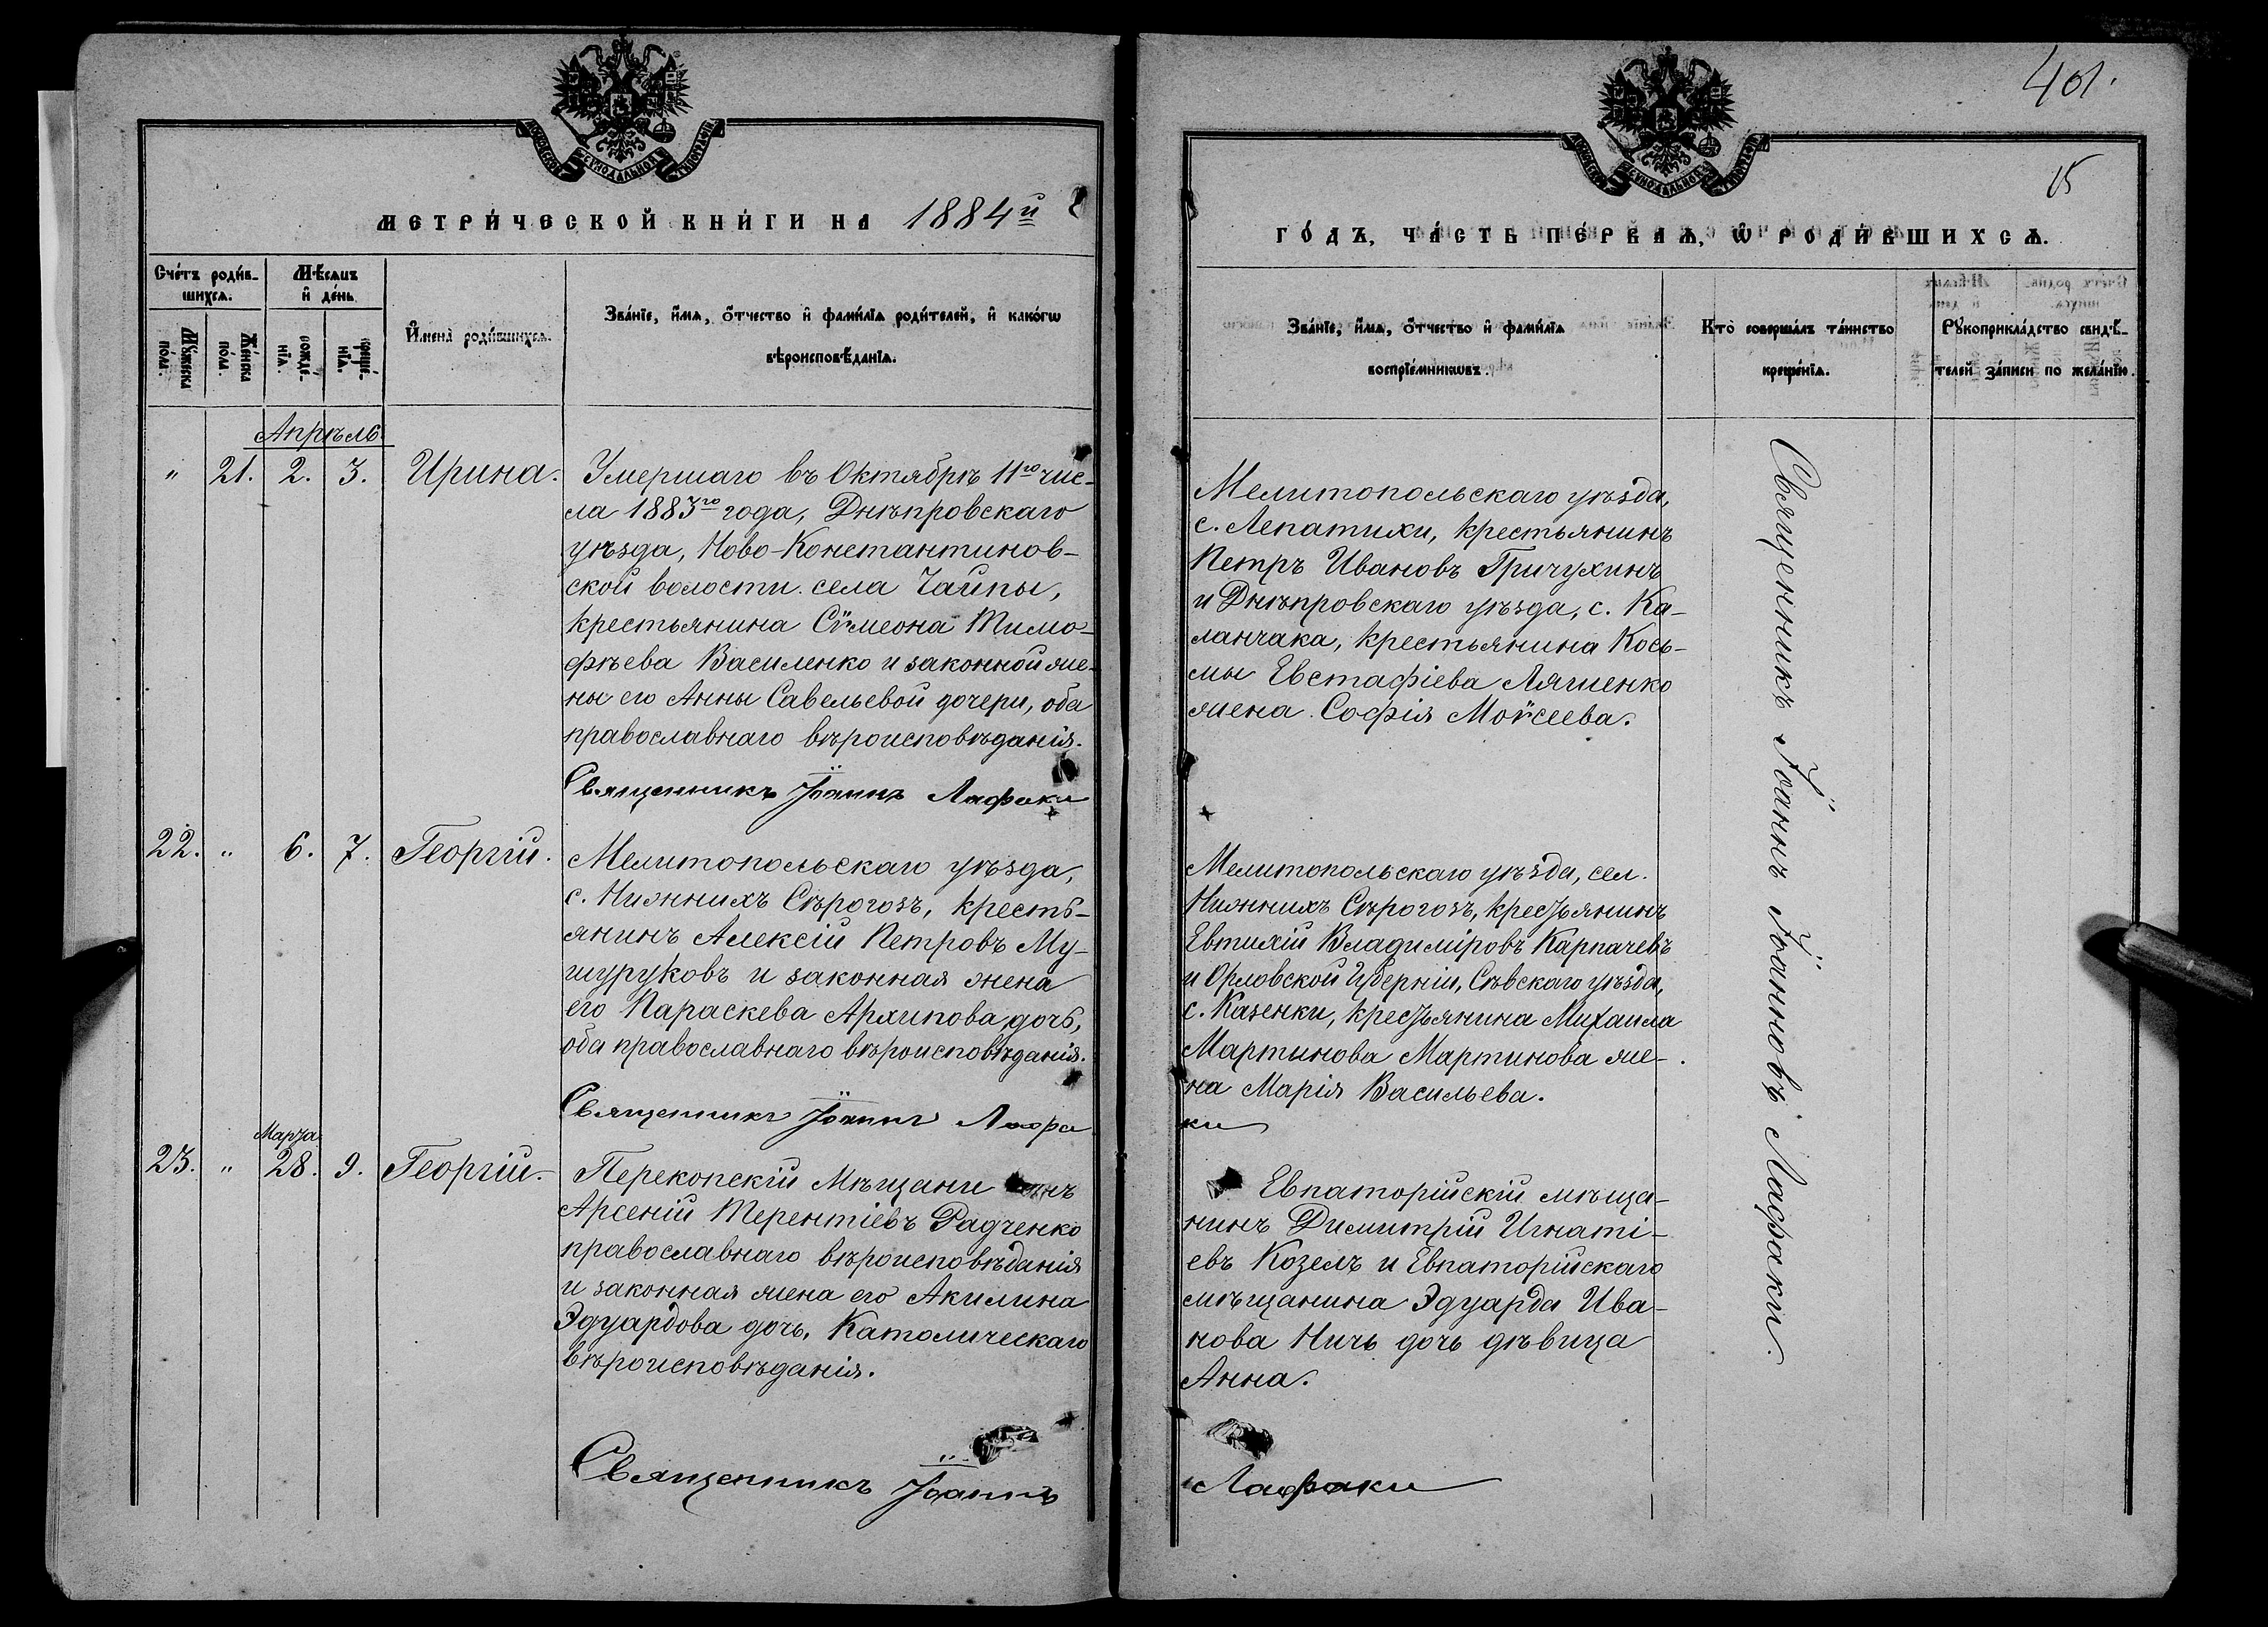 401.
15
МОСКОВСКОЙ СѴНОДАЛЬНОЙ ТИПОГРАФІИ
МОСКОВСКОЙ СѴНОДАЛЬНОЙ ТИПОГРАФІИ
МЕТРИ́ЧЕСКОЙ КНИ́ГИ НА 1884й
ГО́ДЪ, ЧА́СТЬ ПЕ́РВАѦ, Ѡ҆ РОДИ́ВШИХСѦ.
Сче́тъ роди́в-
шихсѧ.
Мꙋ́жеска по́ла.
Же́нска по́ла.
Мѣ́сѧцъ
и҆ де́нь
рожде́-
нїѧ.
креще́-
нїѧ.
И҆мена̀ роди́вшихсѧ.
Зва́нїе, и҆́мѧ, ѻ҆́тчество и҆ фами́лїѧ роди́телей, и҆ како́гѡ
вѣроисповѣ́данїѧ.
Зва́нїе, и҆́мѧ, ѻ҆́тчество и҆ фами́лїѧ
воспрїе́мникѡвъ.
Кто̀ соверша́лъ та́инство
креще́нїѧ.
Рꙋкоприкла́дство свидѣ́-
телей за́писи по жела́нїю.
Апрѣль
" 21. 2. 3. Ирина.
Умершаго въ Октябрѣ 11го чис-
ла 1883го года, Днѣпровскаго
уѣзда, Ново-Константинов-
ской волости села Чайпы,
крестьянина Сѵмеона Тимо-
фѣева Василенко и законной же-
ны его Анны Савельевой дочери, оба
православнаго вѣроисповѣданія.
Священникъ Іоаннъ Лафаки
Мелитопольскаго уѣзда,
с. Лепатихи, крестьянинъ
Петръ Ивановъ Гричухинъ
и Днѣпровскаго уѣзда, с. Ка-
ланчака, крестьянина Кось-
мы Евстафіева Ляшенко
жена Софія Моѵсеева.
Священникъ Іоаннъ Іоанновъ Лафаки.
22. " 6. 7. Георгій.
Мелитопольскаго уѣзда,
с. Нижнихъ Сѣрогозъ, кресть-
янинъ Алексій Петровъ Му-
шуруковъ и законная жена
его Параскева Архипова дочь,
оба православнаго вѣроисповѣданія.
Священникъ Іоаннъ Лафа
Мелитопольскаго уѣзда, сел.
Нижнихъ Сѣрогозъ, крестьянинъ
Евтихій Владиміровъ Карпачевъ
и Орловской Губерніи, Сѣвскаго уѣзда,
с. Казенки, крестьянина Михаила
Мартынова Мартинова же-
на Марія Васильева.
ки
Марта
23. " 28. 9. Георгій.
Перекопскій Мѣщани нъ
Арсеній Терентіевъ Радченко
православнаго вѣроисповѣданія
и законная жена его Акилина
Эдуардова дочь, Католическаго
вѣроисповѣданія.
Священникъ Іоаннъ
Евпаторійскій мѣща-
нинъ Димитрій Игнаті-
евъ Козелъ и Евпаторійскаго
мѣщанина Эдуарда Ива-
нова Ничъ дочь дѣвица
Анна.
Лафаки